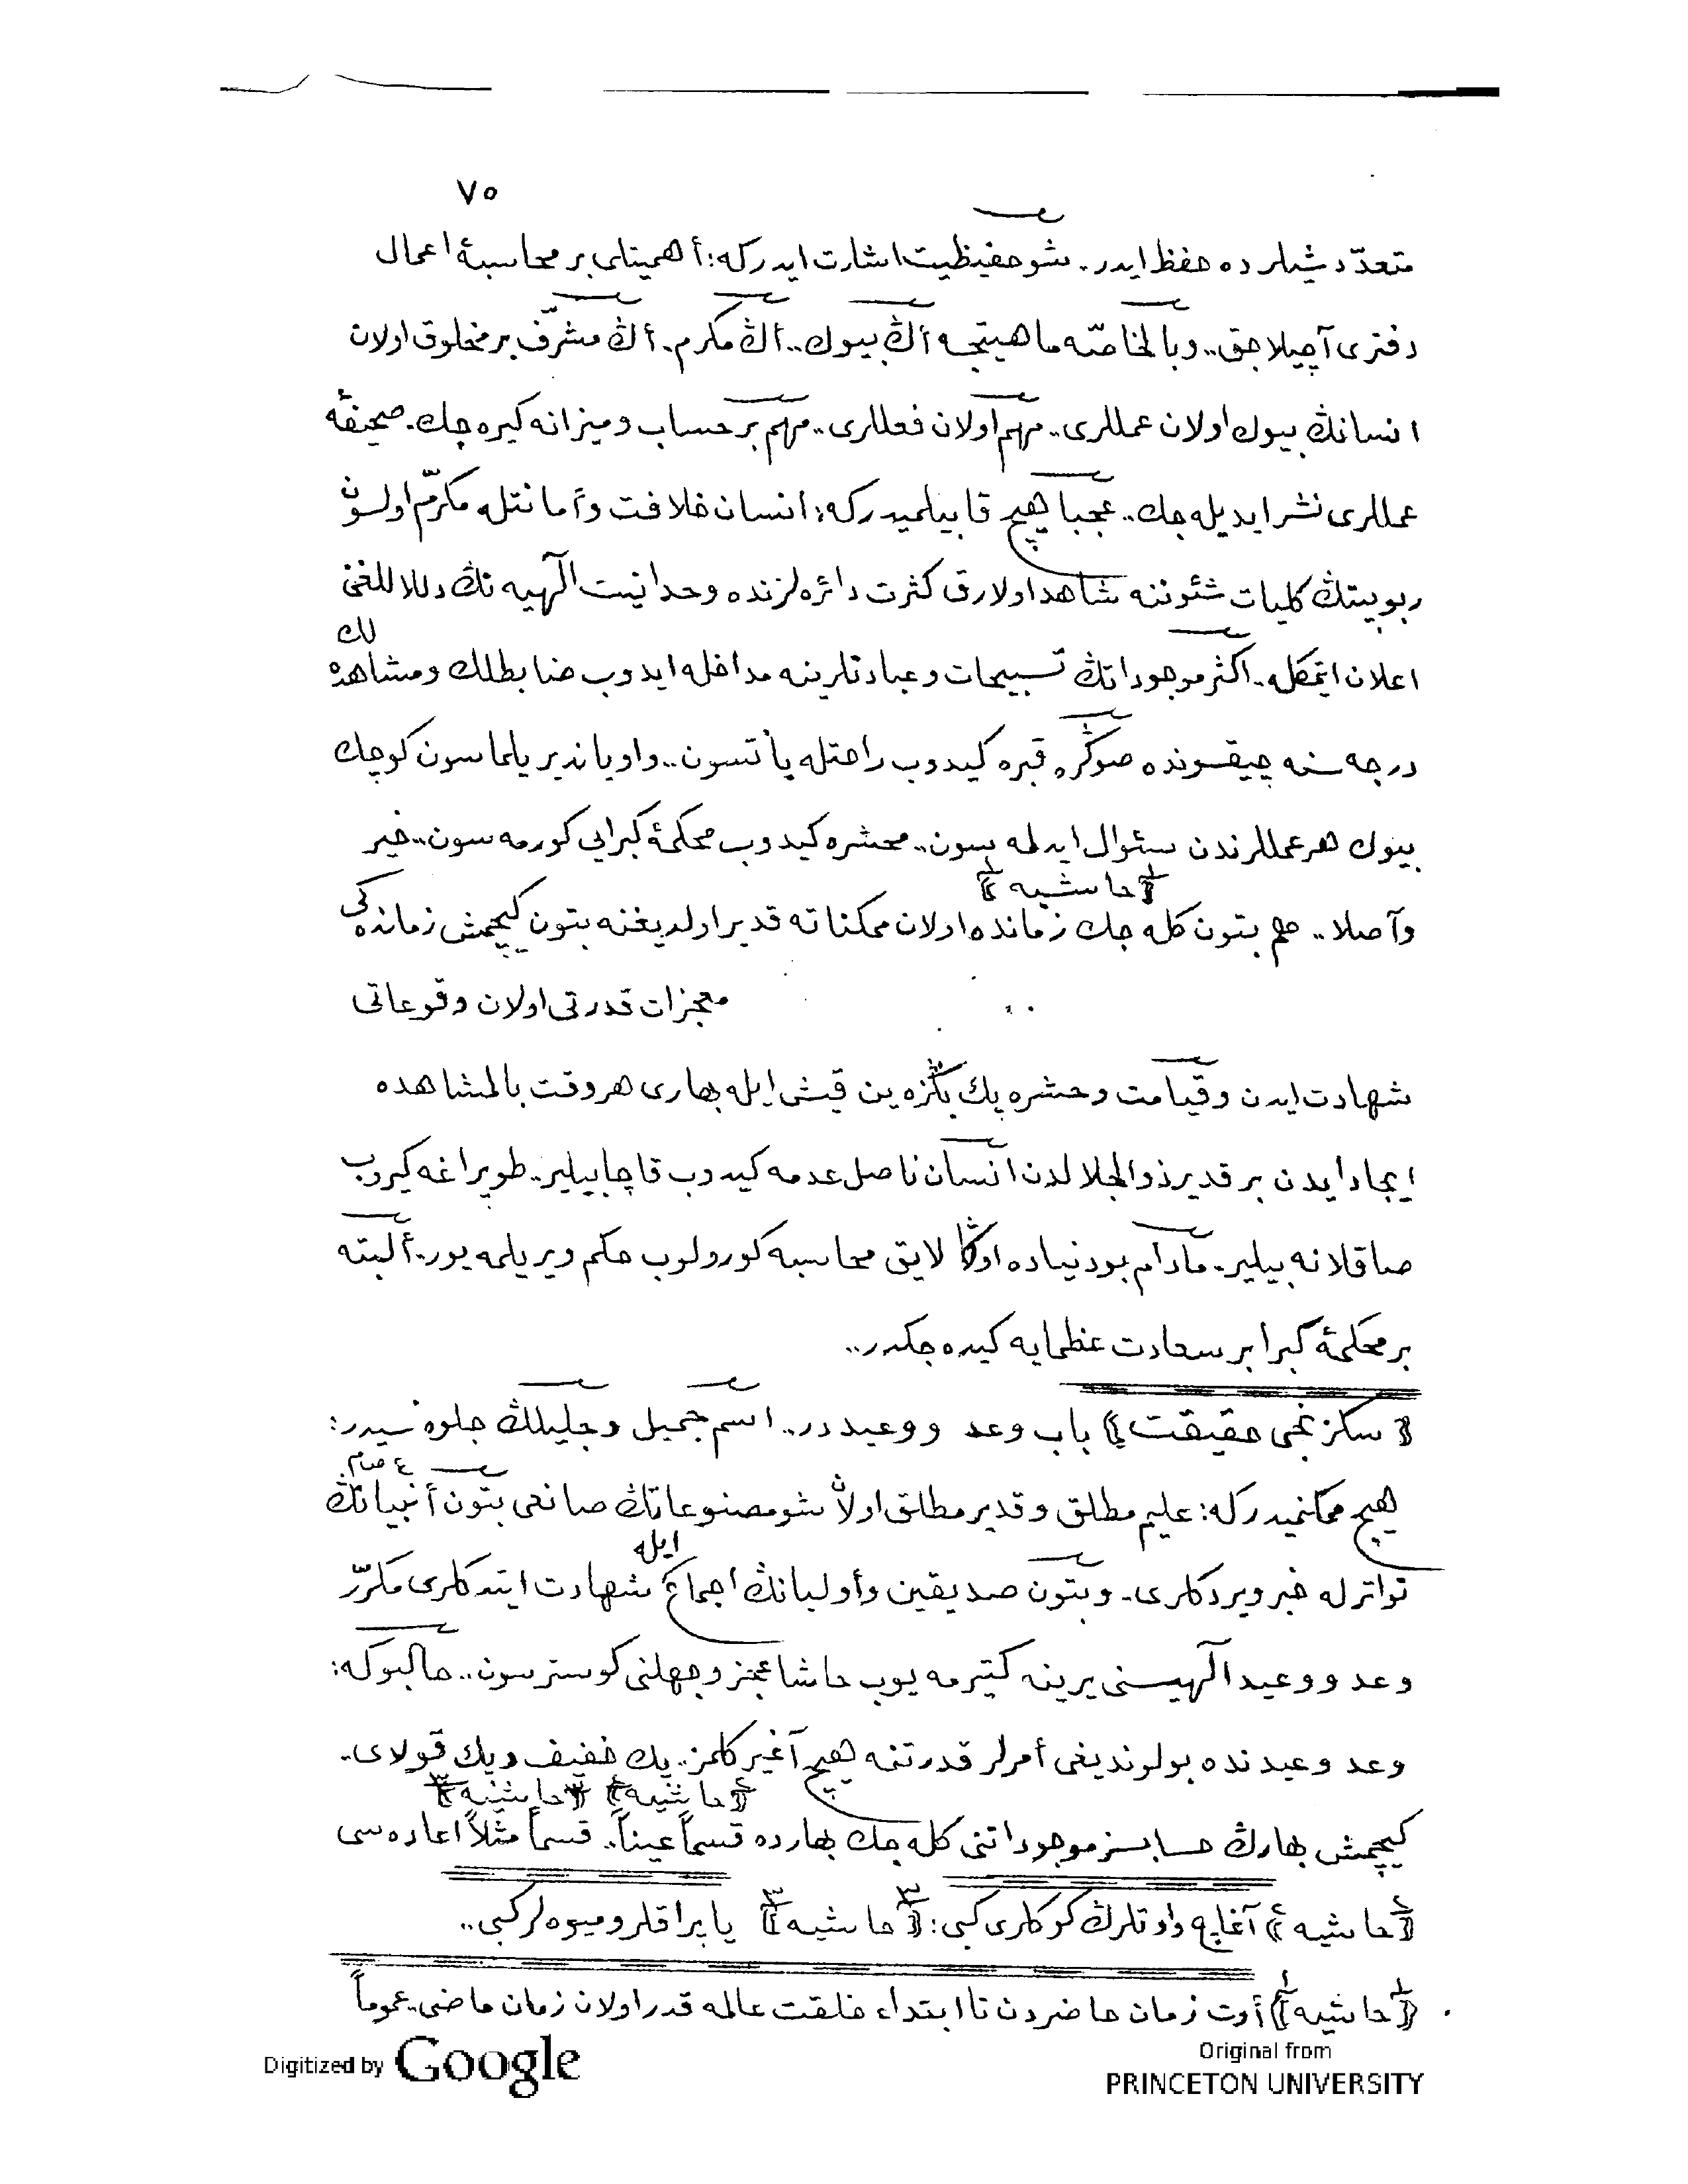 ٧٥
متعدّد شيلرده حفظ ايدر. شو حفيظيت اشارت ايدركه: أهميتلى بر محاسبهٔ اعمال
دفترى آچيلاجق.. وبالخاصّه ماهيتجه أڭ بيوك.. أڭ مكرم. أڭ مشرّف بر مخلوق اولان
انسانڭ بيوك اولان عمللرى.. مهم اولان فعللرى.. مهم بر حساب وميزانه كيره جك. صحيفهٔ
عمللرى نشر ايديله جك.. عجبا هيچ قابيلميدركه: انسان خلافت وأمانتله مكرّم اولسون
ربوبيتڭ كليات شئوننه شاهد اولارق كثرت دائره لرنده وحدانيت الٓهيه نڭ دلاللغنى
لك
اعلان ايتمكله. اكثر موجوداتڭ تسبيحات وعبادتلرينه مداخله ايدوب ضابطلك ومشاهده
درجه سنه چيقسونده صوڭره قبره كيدوب راحتله يأتسون.. واوياندير يلماسون كوچك
بيوك هر عمللرندن سئوال ايدلمه يسون.. محشره كيدوب محكمهٔ كبرايى كورمه سون.. خير
﴿حاشيه ١﴾
وآصلا.. هم بتون كله جك زمانده اولان ممكناته قدير اولديغنه بتون كيچمش زمانده كى
معجزات قدرتى اولان وقوعاتى
شهادت ايدن وقيامت وحشره پك بڭزه ين قيش ايله بهارى هر وقت بالمشاهده
ايجاد ايدن بر قدير ذوالجلالدن انسان ناصل عدمه كيدوب قاچابيلير. طوپراغه كيروب
صاقلانه بيلير. مادام بو دنياده اوڭا لايق محاسبه كورولوب حكم ويريلمه يور. ألبته
بر محكمهٔ كبرا بر سعادت عظمايه كيده جكدر..
﴿سكزنجى حقيقت﴾ باب وعد ووعيددر.. اسم جميل وجليللڭ جلوه سيدر:
هيچ ممكنميدركه: عليم مطلق وقدير مطلق اولان شو مصنوعاتڭ صانعى بتون أنبيانڭ
ايله
تواترله خبر ويردكلرى. وبتون صديقين وأوليانڭ اجماع شهادت ايتدكلرى مكرّر
وعد ووعيد الٓهيسنى يرينه كتيرمه يوب حاشا عجز وجهلنى كوسترسون.. حالبوكه:
وعد وعيدنده بولونديغى أمرلر قدرتنه هيچ آغير كلمز.. پك خفيف وپك قولاى.
﴿حاشيه ٢﴾ ﴿حاشيه ٣﴾
كيچمش بهارڭ حسابسز موجوداتنى كله جك بهارده قسماً عيناً.. قسماً مثلاً اعاده سى
﴿حاشيه ٢﴾ آغاچ واوتلرڭ كوكلرى كبى: ﴿حاشيه ٣﴾ ياپراقلر وميوه لر كبى..
﴿حاشيه ١﴾ أوت زمان حاضردن تا ابتداء خلقت عالمه قدر اولان زمان ماضى. عموماً
Digitized by Google
Original from
PRINCETON UNIVERSITY